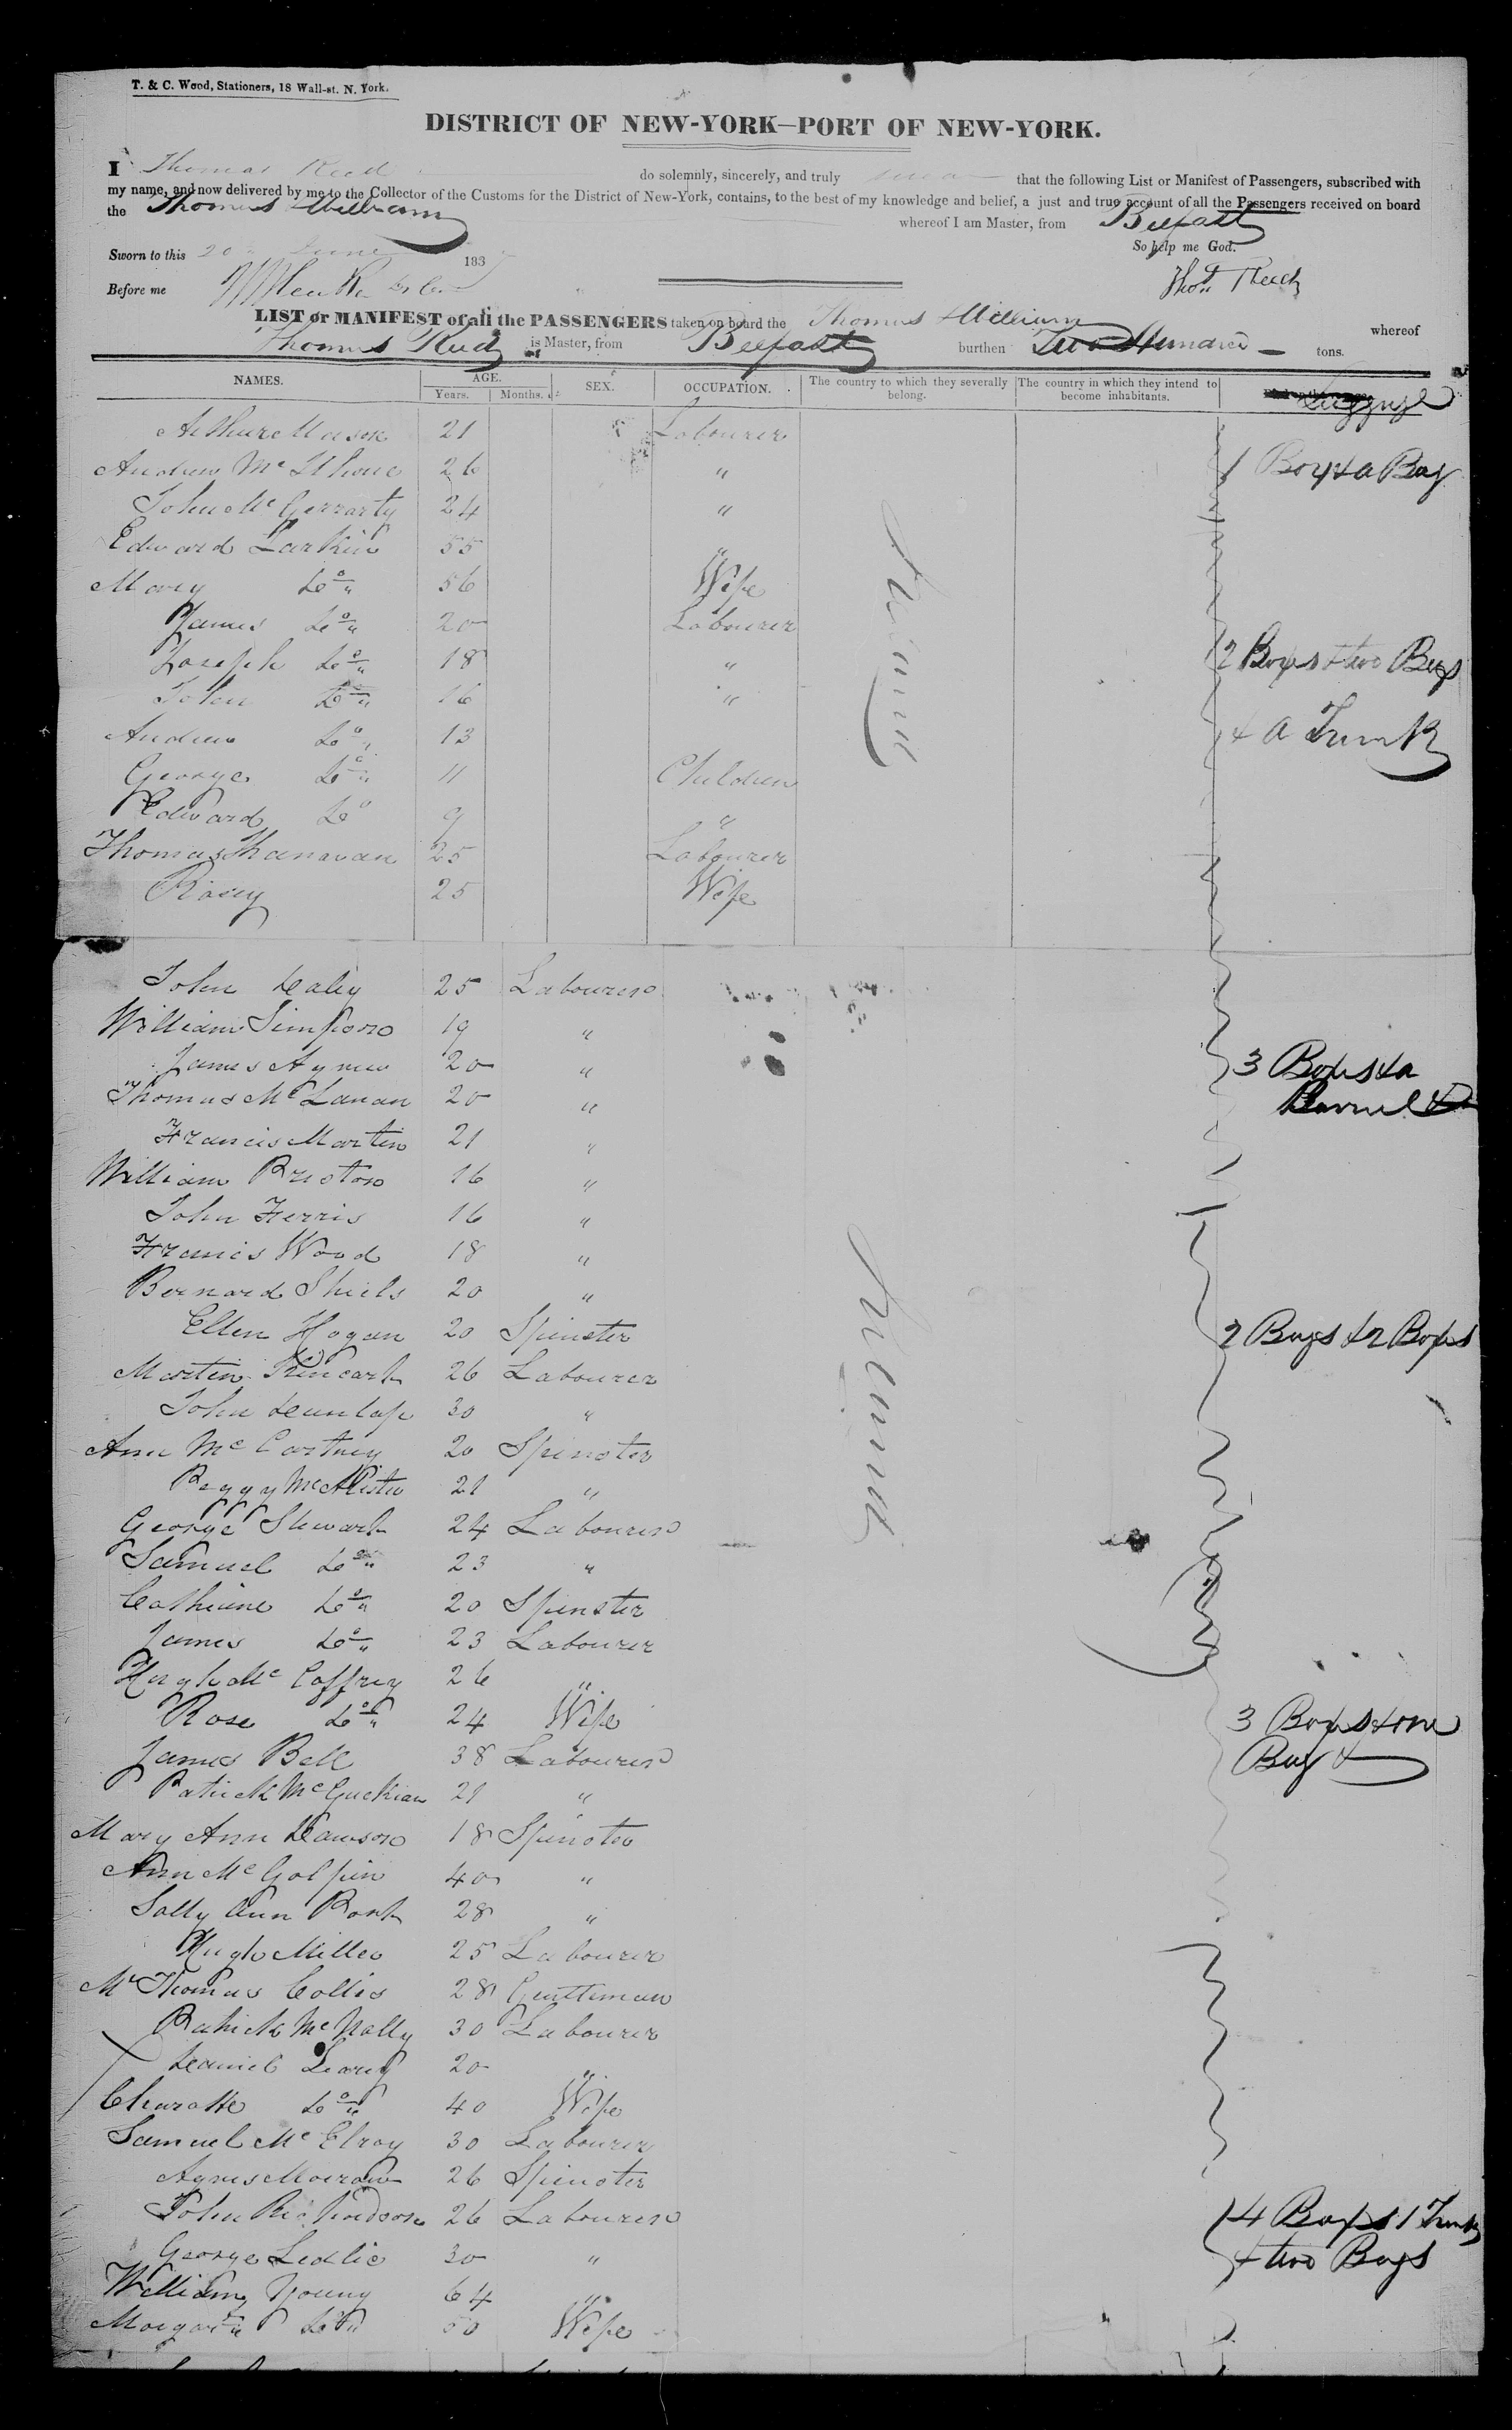 T. & C. Wood, Stationers, 18 Wall-st. N. York.
DISTRICT OF NEW-YORK—PORT OF NEW-YORK.
I Thomas Reed do solemnly, sincerely, and truly swear that the following List or Manifest of Passengers, subscribed with
my name, and now delivered by me to the Collector of the Customs for the District of New-York, contains, to the best of my knowledge and belief, a just and true account of all the Passengers received on board
the Thomas William whereof I am Master, from Belfast
So help me God.
Sworn to this 20 June 183
Before me
LIST or MANIFEST of all the PASSENGERS taken on board the Thomas William whereof
Thomas is Master, from Belfast burthen Two Hundred tons.
NAMES. AGE. Years. Months. SEX. OCCUPATION. The country to which they severally belong. The country in which they intend to become inhabitants. Luggage
Arthur Mason 21 Labourer
Andrew 26 " 1 Box & a Bag
John McGerrarty 24 "
Edward Larkin 55 "
Mary Do 56 Wife
James Do 20 Labourer
Joseph Do 18 " 2 Boxes & two Bags
John Do 16 "
Andrew Do 13 & A Trunk
George Do 11 Children
Edward Do 9 "
Thomas Shanavan 25 Labourer
Rosey 25 Wife
John Daley 25 Labourer
William Simpson 19 "
James Agnew 20 " 3 Boxes & a
Thomas McLanan 20 " Barrel &
Francis Martin 21 "
William Preston 16 "
John Ferris 16 "
Francis Wood 18 "
Bernard Shiels 20 "
Ellen Hogan 20 Spinster 2 Bags & 2 Boxes
Martin 26 Labourer
John Dunlap 30 "
Ann McCartney 20 Spinster
Peggy McAlister 21 "
George Stewart 24 Labourer
Samuel Do 23 "
Catherine Do 20 Spinster
James Do 23 Labourer
Hugh McCaffrey 26 "
Rose Do 24 Wife 3 Boxes & one
James Bell 38 Labourer Bag &
Patrick McGuckian 21 "
Mary Ann Dawson 18 Spinster
Ann McGolpin 40 "
Sally Ann 28 "
Hugh Miller 25 Labourer
Mr Thomas Collis 28 Gentleman
Patrick McNally 30 Labourer
Daniel Leary 20 "
Charotte Do 40 Wife
Samuel McElroy 30 Labourer
Agnes 26 Spinster
John Richardson 26 Labourer 4 Boxes 1 Trunk
George Ledlie 30 " & two Bags
William Young 64 "
Margaret Do 50 Wife